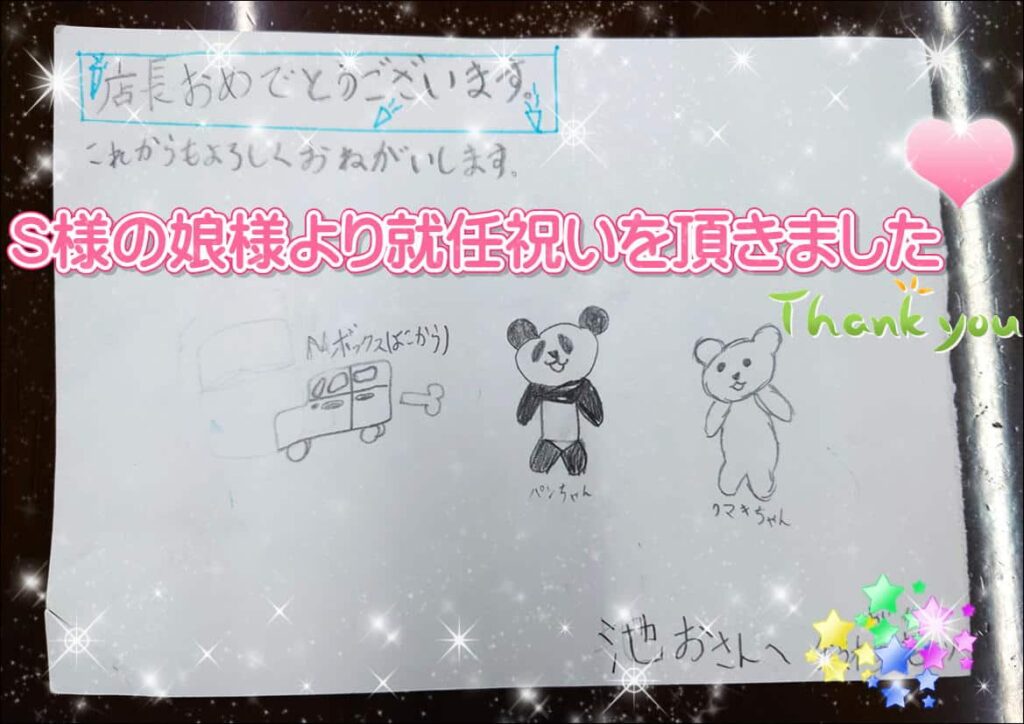 店長おめでとうございます。
これからもよろしくおねがいします。
S様の娘様より就任祝いを頂きました
Thank you
Nボックス(よこから)
パンちゃん
クマきちゃん
池おさんへ